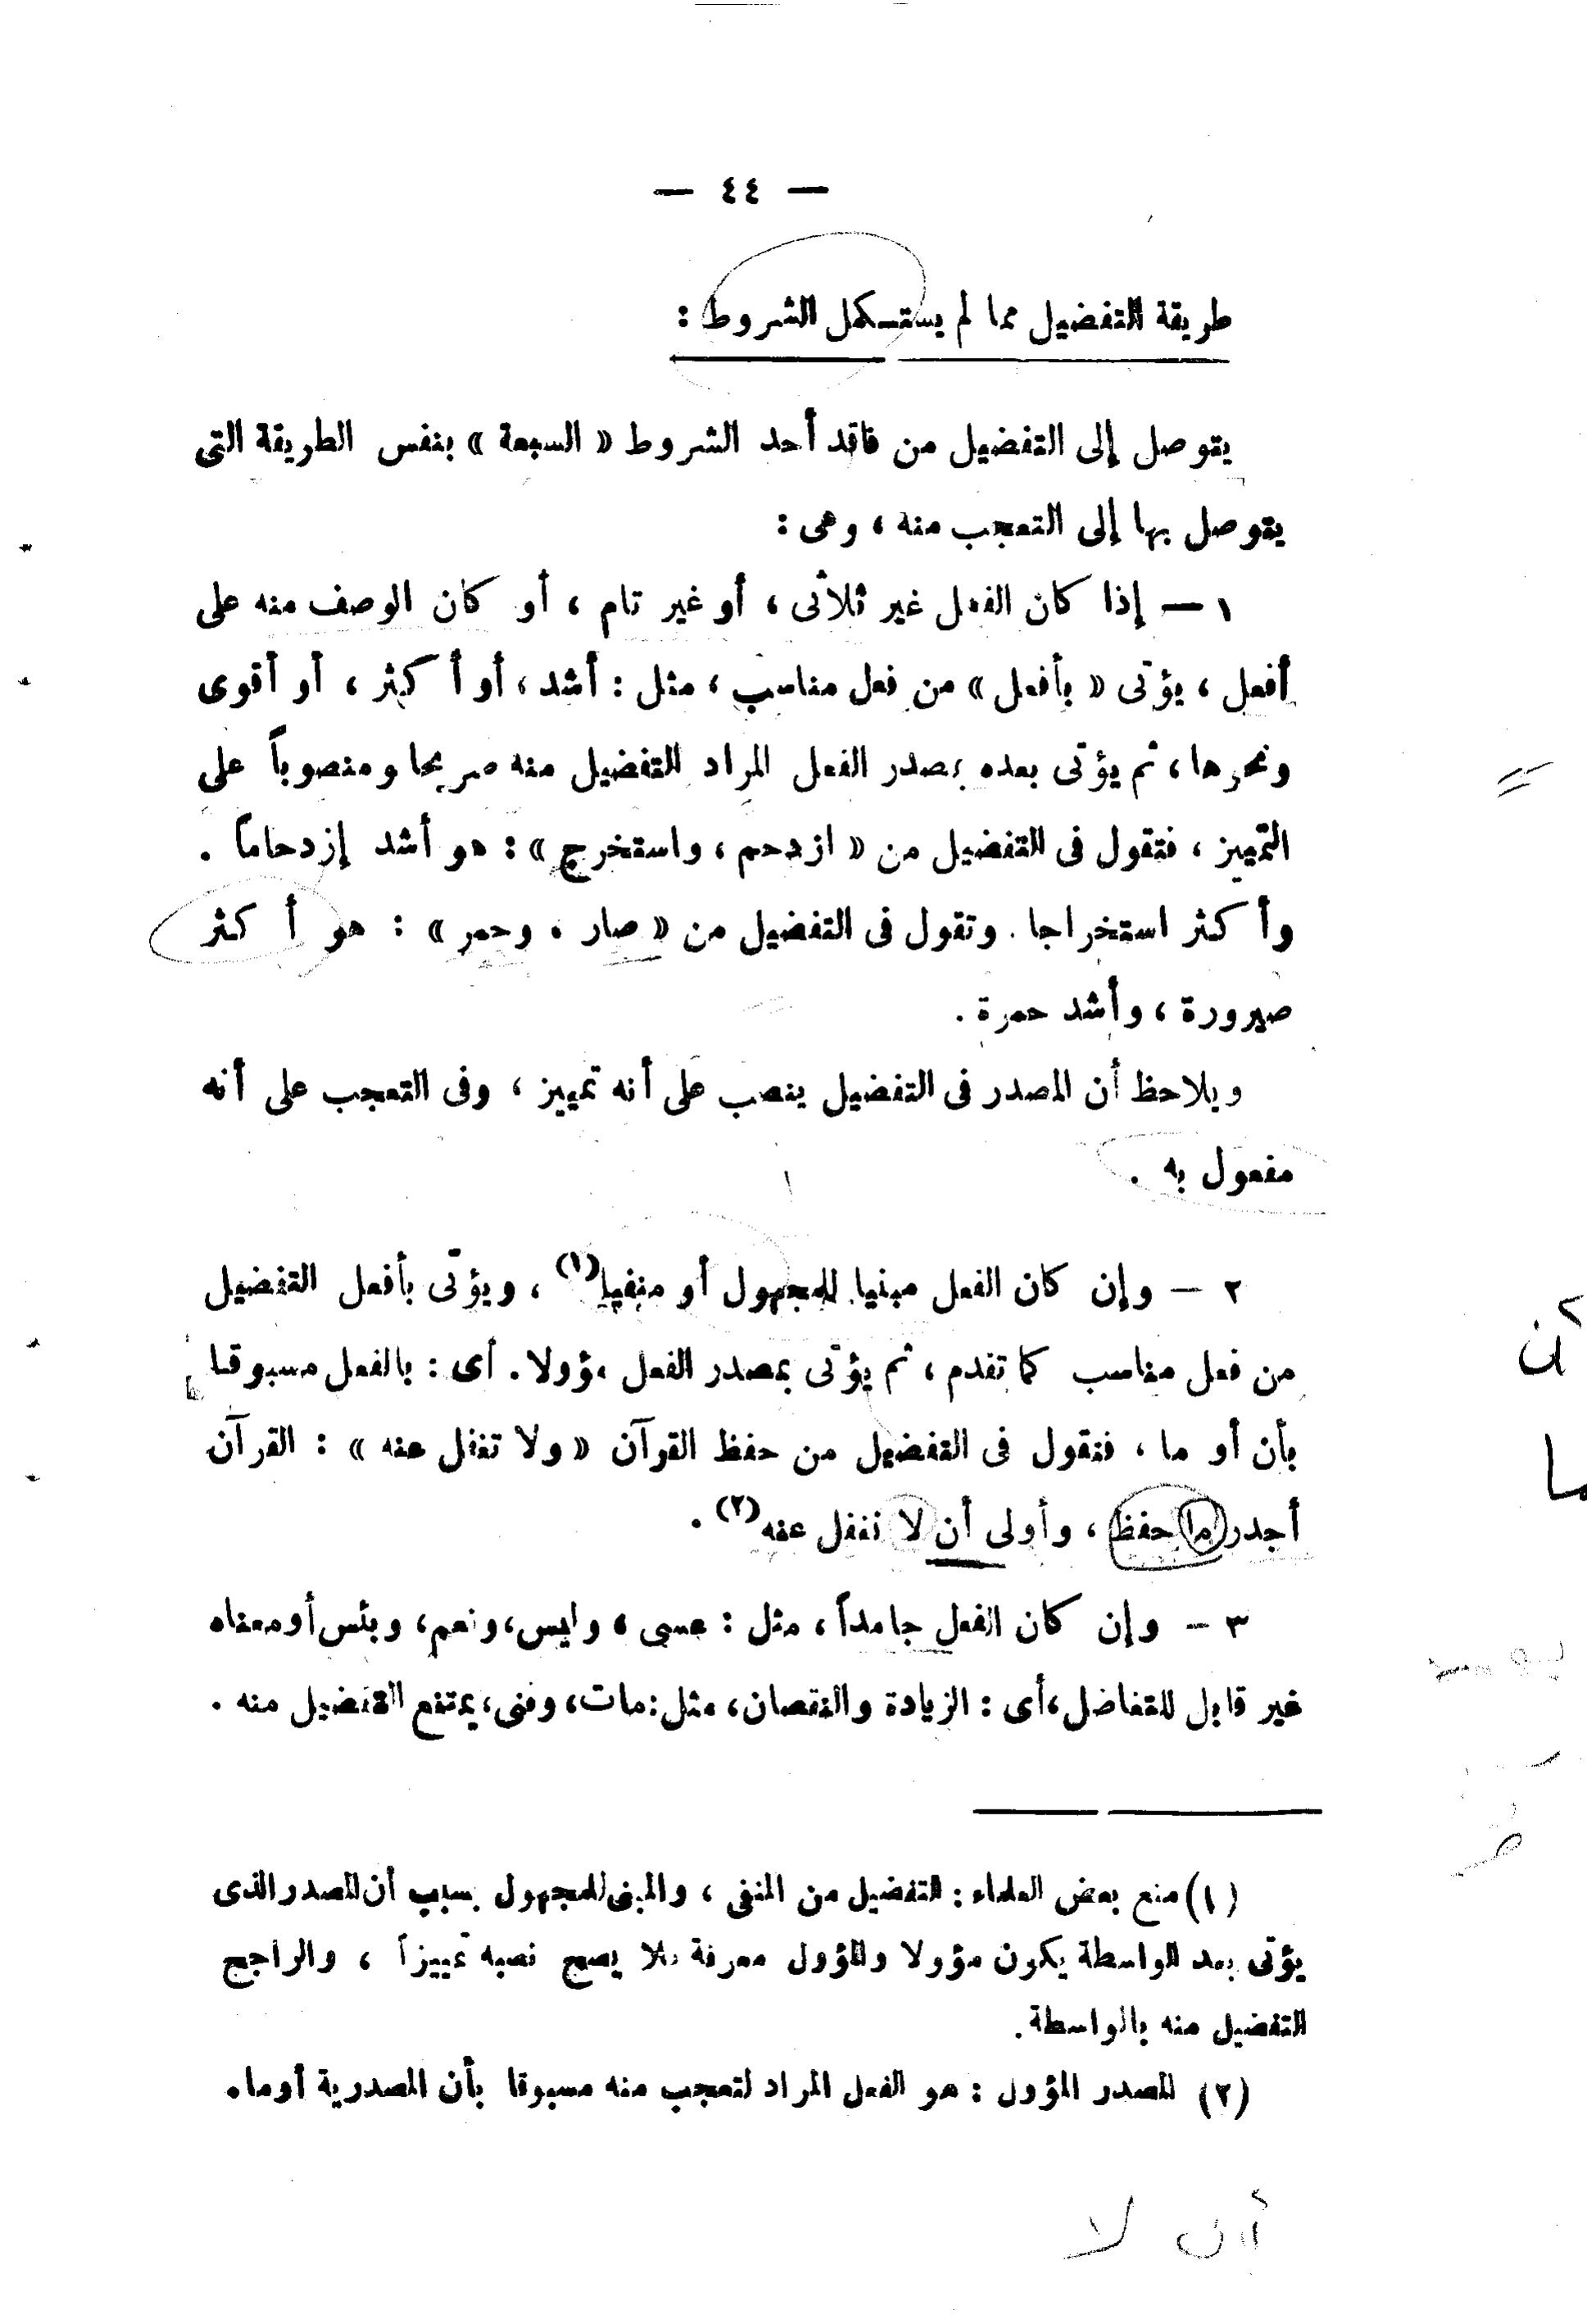 — ٤٤ —
طريقة التفضيل مما لم يستكمل الشروط :
يتوصل إلى التفضيل من فاقد أحد الشروط « السبعة » بنفس الطريقة التى
يتوصل بها إلى التعجب منه ، وهى :
١ — إذا كان الفعل غير ثلاثى ، أو غير تام ، أو كان الوصف منه على
أفعل ، يؤتى « بأفعل » من فعل مناسب ، مثل : أشد ، أو أكثر ، أو أقوى
ونحوها ، ثم يؤتى بعده بمصدر الفعل المراد التفضيل منه صريحا ومنصوباً على
التمييز ، فتقول فى التفضيل من « ازدحم ، واستخرج » : هو أشد إزدحاماً .
وأكثر استخراجا . وتقول فى التفضيل من « صار ، وحمر » : هو أكثر
صيرورة ، وأشد حمرة .
ويلاحظ أن المصدر فى التفضيل ينصب على أنه تمييز ، وفى التعجب على أنه
مفعول به .
٢ — وإن كان الفعل مبنيا للمجهول أو منفيا(١) ، ويؤتى بأفعل التفضيل
من فعل مناسب كما تقدم ، ثم يؤتى بمصدر الفعل مؤولا . أى : بالفعل مسبوقا
بأن أو ما ، فتقول فى التفضيل من حفظ القرآن « ولا تغفل عنه » : القرآن
أجدر ما حفظ ، وأولى أن لا نغفل عنه(٢) .
٣ — وإن كان الفعل جامداً ، مثل : عسى ، وليس ، ونعم ، وبئس أو معناه
غير قابل للتفاضل ، أى : الزيادة والنقصان ، مثل : مات ، وفنى ، يمتنع التفضيل منه .
(١) منع بعض العلماء : التفضيل من المنفى ، والمبنى للمجهول بسبب أن المصدر الذى
يؤتى بعد الواسطة يكون مؤولا والمؤول معرفة فلا يصح نصبه تمييزاً ، والراجح
التفضيل منه بالواسطة .
(٢) المصدر المؤول : هو الفعل المراد لتعجب منه مسبوقا بأن المصدرية أو ما .
أن
ما
أن لا